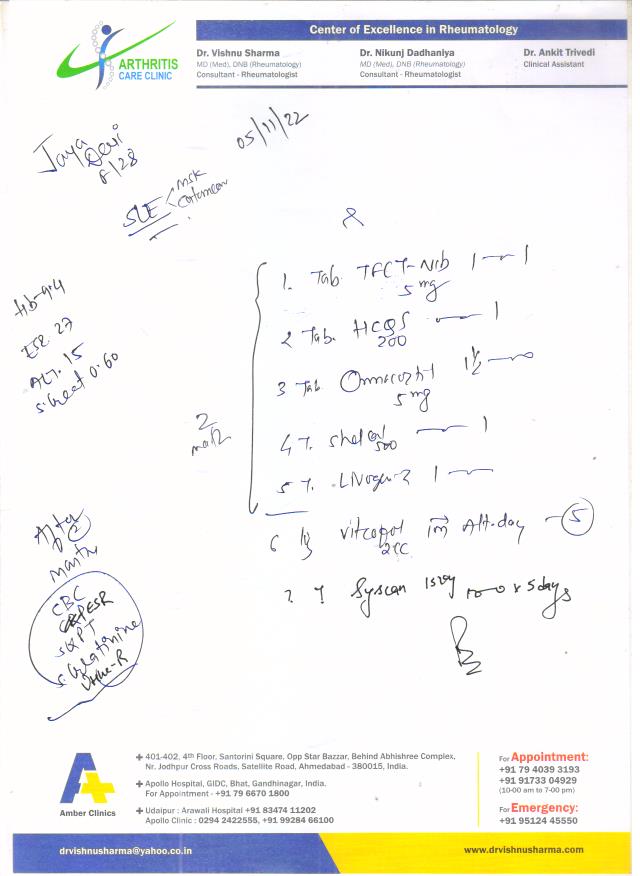 ARTHRITIS
CARE CLINIC
Center of Excellence in Rheumatology
Dr. Vishnu Sharma
MD (Med), DNB (Rheumatology)
Consultant - Rheumatologist
Dr. Nikunj Dadhaniya
MD (Med), DNB (Rheumatology)
Consultant - Rheumatologist
Dr. Ankit Trivedi
Clinical Assistant
Jaya
Devi
F/28
05/11/22
SLE
MSK
Hb-9.4
ESR. 27
ALT. 15
S. Creat 0.60
1. Tab. TFCT-Nib 1 — 1
5 mg
2 Tab. HCQS — 1
200
3 Tab Omnacortil 1½ — 0
5 mg
4 T. Shelcal — 1
500
5 T. Livogen-Z 1 —
2
6 Vitcofol im Alt.day - 5
2cc
7 T Syscan 150 1 — 0 x 5 days
After
2
CBC
ESR
SGPT
S. Creatinine
Urine-R
Amber Clinics
401-402, 4th Floor, Santorini Square, Opp Star Bazzar, Behind Abhishree Complex,
Nr. Jodhpur Cross Roads, Satellite Road, Ahmedabad - 380015, India.
Apollo Hospital, GIDC, Bhat, Gandhinagar, India.
For Appointment - +91 79 6670 1800
Udaipur : Arawali Hospital +91 83474 11202
Apollo Clinic : 0294 2422555, +91 99284 66100
For Appointment:
+91 79 4039 3193
+91 91733 04929
(10-00 am to 7-00 pm)
For Emergency:
+91 95124 45550
drvishnusharma@yahoo.co.in
www.drvishnusharma.com